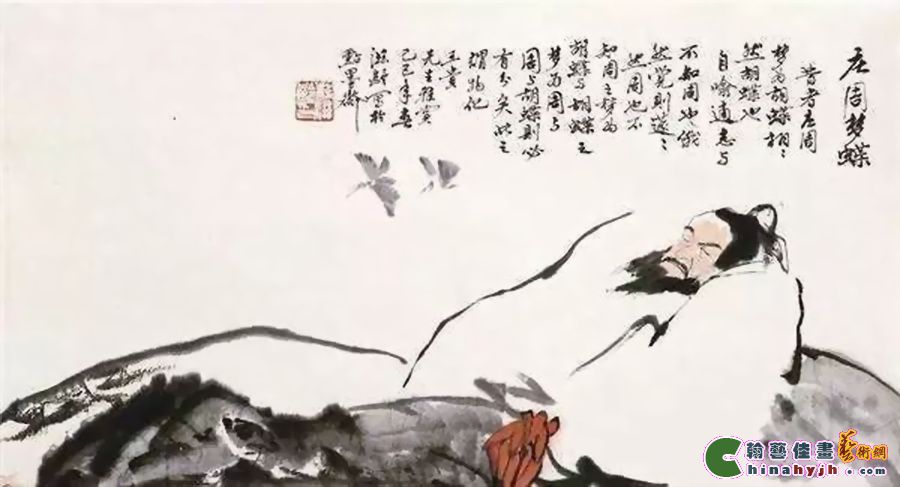 庄周梦蝶
昔者庄周
梦为胡蝶栩々
然胡蝶也
自喻適志与
不知周也俄
然觉则蘧々
然周也不
知周之梦为
胡蝶与胡蝶之
梦为周与
周与胡蝶则必
有分矣此之
谓物化
先生雅赏
己巳年春
写於
翰藝佳畫藝術網
Chinahyjh.com